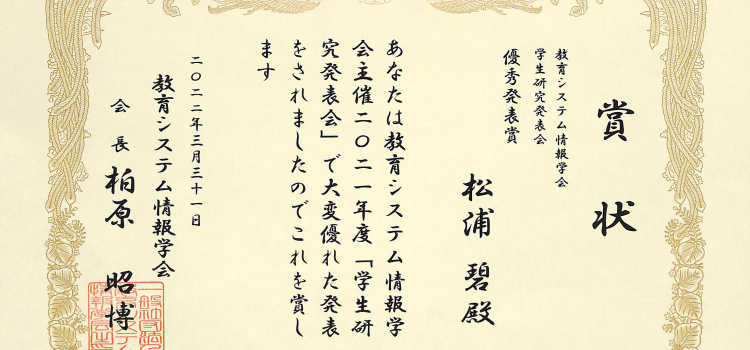 賞状
教育システム情報学会
学生研究発表会
優秀発表賞
松浦 碧 殿
あなたは教育システム情報学
会主催二〇二一年度「学生研
究発表会」で大変優れた発表
をされましたのでこれを賞し
ます
二〇二二年三月三十一日
教育システム情報学会
会長 柏原 昭博